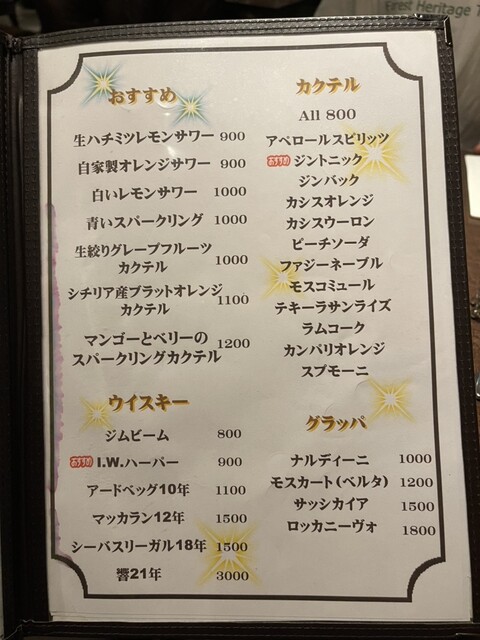 Eirest Heritage T
おすすめ
生ハチミツレモンサワー 900
自家製オレンジサワー 900
白いレモンサワー 1000
青いスパークリング 1000
生絞りグレープフルーツ
カクテル 1000
シチリア産ブラットオレンジ
カクテル 1100
マンゴーとベリーの
スパークリングカクテル 1200
ウイスキー
ジムビーム 800
おすすめ I.W.ハーパー 900
アードベッグ10年 1100
マッカラン12年 1500
シーバスリーガル18年 1500
響21年 3000
カクテル
All 800
アペロールスピリッツ
おすすめ ジントニック
ジンバック
カシスオレンジ
カシスウーロン
ピーチソーダ
ファジーネーブル
モスコミュール
テキーラサンライズ
ラムコーク
カンパリオレンジ
スプモーニ
グラッパ
ナルディーニ 1000
モスカート(ベルタ) 1200
サッシカイア 1500
ロッカニーヴォ 1800